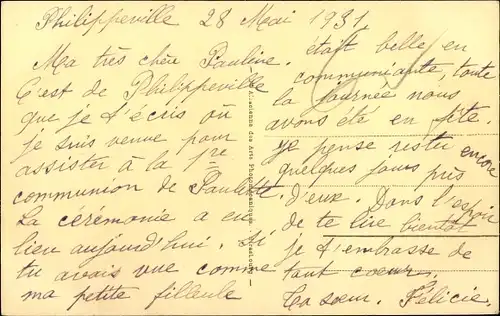 Philippeville 28 Mai 1931
Ma très chère Pauline.
C'est de Philippeville
que je t'écris où
je suis venue pour
assister à la 1re
communion de Paulette.
La cérémonie a eu
lieu aujourd'hui. Si
tu avais vue comme
ma petite filleule
était belle en
communiante, toute
la journée nous
avons été en fête.
Je pense rester encore
quelques jours près
d'eux. Dans l'espoir
de te lire bientôt
je t'embrasse de
tout coeur.
Ta soeur. Félicie.